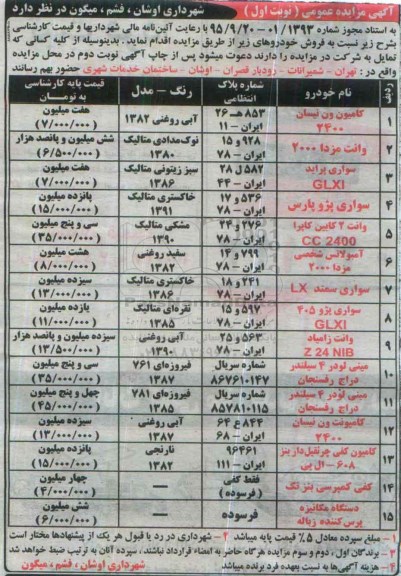 آگهی مزایده عمومی ( نوبت اول )
شهرداری اوشان ، فشم، میگون در نظر دارد
به استناد مجوز شماره ۰۱/۱۳۹۳-۹۵/۹/۲۰ با رعایت آئین‌نامه مالی شهرداریها و قیمت کارشناسی
بشرح زیر نسبت به فروش خودروهای زیر از طریق مزایده اقدام نماید . بدینوسیله از کلیه کسانی که
تمایل به شرکت در مزایده را دارند دعوت میشود پس از چاپ آگهی نوبت دوم در محل مزایده
واقع در : تهران - شمیرانات - رودبار قصران - اوشان - ساختمان خدمات شهری حضور بهم رسانند
ردیف
نام خودرو
شماره پلاک انتظامی
رنگ - مدل
قیمت پایه کارشناسی به تومان
۱ کامیون ون نیسان ۲۴۰۰ ۸۵۳ هـ ۲۶ ایران - ۱۱ آبی روغنی ۱۳۸۲ هفت میلیون (۷/۰۰۰/۰۰۰)
۲ وانت مزدا ۲۰۰۰ ۹۲۸ و ۱۵ ایران - ۷۸ نوک‌مدادی متالیک ۱۳۸۰ شش میلیون و پانصد هزار (۶/۵۰۰/۰۰۰)
۳ سواری پراید GLXI ۵۸۲ ل ۲۸ ایران - ۴۴ سبز زیتونی متالیک ۱۳۸۶ هفت میلیون (۷/۰۰۰/۰۰۰)
۴ سواری پژو پارس ۵۳۶ و ۱۷ ایران - ۷۸ خاکستری متالیک ۱۳۹۱ پانزده میلیون (۱۵/۰۰۰/۰۰۰)
۵ وانت ۲ کابین کاپرا CC 2400 ۲۷۶ و ۲۴ ایران - ۷۸ مشکی متالیک ۱۳۹۰ سی و پنج میلیون (۳۵/۰۰۰/۰۰۰)
۶ آمبولانس شخصی مزدا ۲۰۰۰ ۷۹۹ و ۱۴ ایران - ۷۸ سفید روغنی ۱۳۸۲ هشت میلیون (۸/۰۰۰/۰۰۰)
۷ سواری سمند LX ۲۴۱ و ۱۸ ایران - ۷۸ خاکستری متالیک ۱۳۸۶ سیزده میلیون (۱۳/۰۰۰/۰۰۰)
۸ سواری پژو ۴۰۵ GLXI ۵۹۷ و ۱۵ ایران - ۷۸ نقره‌ای متالیک ۱۳۸۵ یازده میلیون (۱۱/۰۰۰/۰۰۰)
۹ وانت زامیاد Z 24 NIB ۵۶۳ و ۲۵ ایران - ۷۸ آبی روغنی سیزده میلیون و پانصد هزار (۱۳/۵۰۰/۰۰۰)
۱۰ مینی لودر ۴ سیلندر دراج رفسنجان شماره سریال ۸۶۷۶۱۰۱۴۷ فیروزه‌ای ۷۶۱ ۱۳۸۷ سی و پنج میلیون (۳۵/۰۰۰/۰۰۰)
۱۱ مینی لودر ۴ سیلندر دراج رفسنجان شماره سریال ۸۵۷۸۱۰۱۱۵ فیروزه‌ای ۷۸۱ ۱۳۸۵ چهل و پنج میلیون (۴۵/۰۰۰/۰۰۰)
۱۲ کامیونت ون نیسان ۲۴۰۰ ۸۴۴ ع ۶۴ ایران - ۶۸ آبی روغنی ۱۳۸۷ سیزده میلیون (۱۳/۰۰۰/۰۰۰)
۱۳ کامیون کفی چرثقیل‌دار بنز ۶۰۸ - ال پی ۹۶۴۶۱ ایران - ۱۱۱ نارنجی ۱۳۸۲ پانزده میلیون (۱۵/۰۰۰/۰۰۰)
۱۴ کفی کمپرسی بنز تک فقط کفی ( فرسوده ) — چهار میلیون (۴/۰۰۰/۰۰۰)
۱۵ دستگاه مکانیزه پرس‌کننده زباله فرسوده — شش میلیون (۶/۰۰۰/۰۰۰)
۱- مبلغ سپرده معادل ۵٪ قیمت پایه میباشد ۲- شهرداری در رد یا قبول هر یک از پیشنهادها مختار است
۳- برندگان اول ، دوم و سوم مزایده هرگاه حاضر به امضاء قرارداد نباشند ، سپرده آنان به ترتیب ضبط خواهد شد
۴- هزینه آگهی‌ها به نسبت بعهده فرد برنده میباشد
شهرداری اوشان ، فشم ، میگون